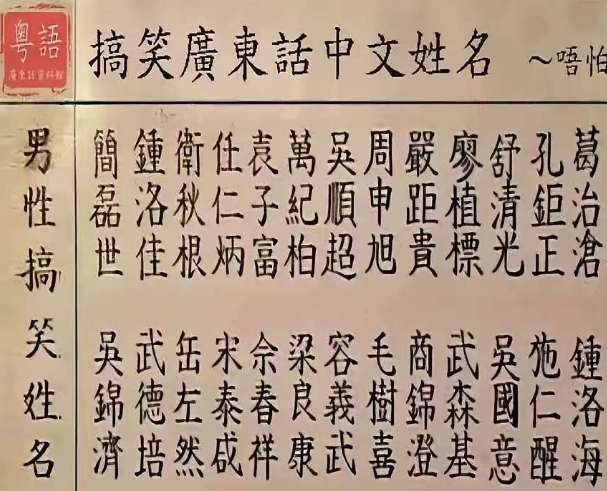 粵語
廣東話資料館
搞笑廣東話中文姓名 ~唔怕
男性搞笑姓名
簡磊世
鍾洛佳
衛秋根
任仁炳
袁子富
萬紀柏
吳順超
周申旭
嚴距貴
廖植標
舒清光
孔鉅正
葛治滄
吳錦濟
武德培
岳左然
宋泰咸
佘春祥
梁良康
容義武
毛樹喜
商錦澄
武森基
吳國意
施仁醒
鍾洛海